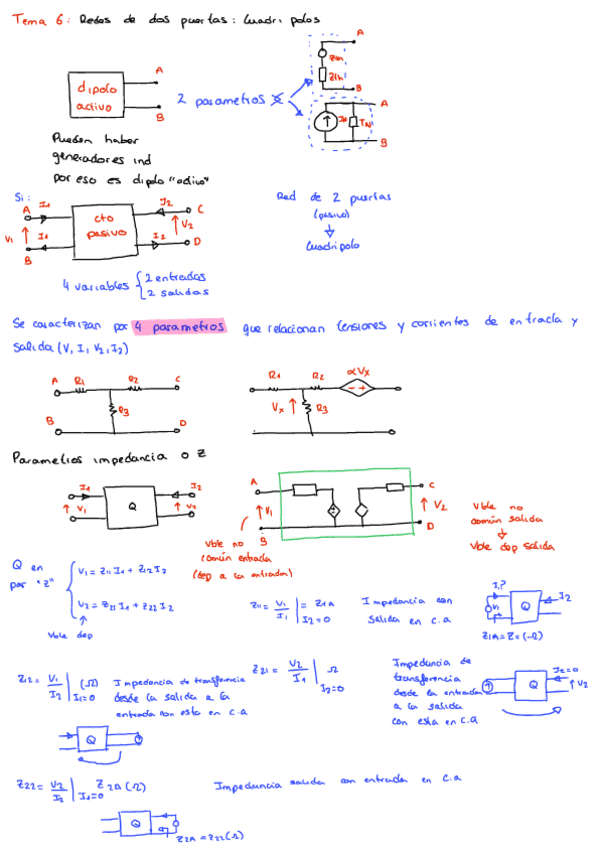 Tema 6: Redes de dos puertas: Cuadripolos
A
dipolo
activo
B
2 parametros
A
Zth
B
A
B
Pueden haber
generadores ind
por eso es dipolo "activo"
Si:
A I1 I2 C
V1 cto
pasivo V2
B I1 I2 D
Red de 2 puertas
(pasivo)
Cuadripolo
4 variables { 2 entradas
2 salidas
Se caracterizan por 4 parametros que relacionan tensiones y corrientes de entrada y
salida (V, I, V2, I2)
A R1 R2 C
R3
B D
R1 R2 αVx
Vx R3
Parametros impedancia o Z
I1 I2
V1 Q V2
A C
V1 V2
B D
Vble no
común entrada
(dep a la entrada)
Vble no
común salida
Vble dep salida
Q en
por "z"
V1 = Z11 I1 + Z12 I2
V2 = Z21 I1 + Z22 I2
Vble dep
Z11 = V1/I1 | I2=0 = Z1A
Impedancia con
salida en c.a
I1? Q I2
Z1A = Z11 (Ω)
Z12 = V1/I2 | I1=0 (Ω)
Impedancia de transferencia
desde la salida a la
entrada con esta en c.a
Q
Z21 = V2/I1 | I2=0 Ω
Impedancia de
transferencia
desde la entrada
a la salida
con esta en c.a
I2=0
Q V2
Z22 = V2/I2 | I1=0 Z2A (Ω)
Impedancia salida con entrada en c.a
Q
Z2A = Z22 (Ω)